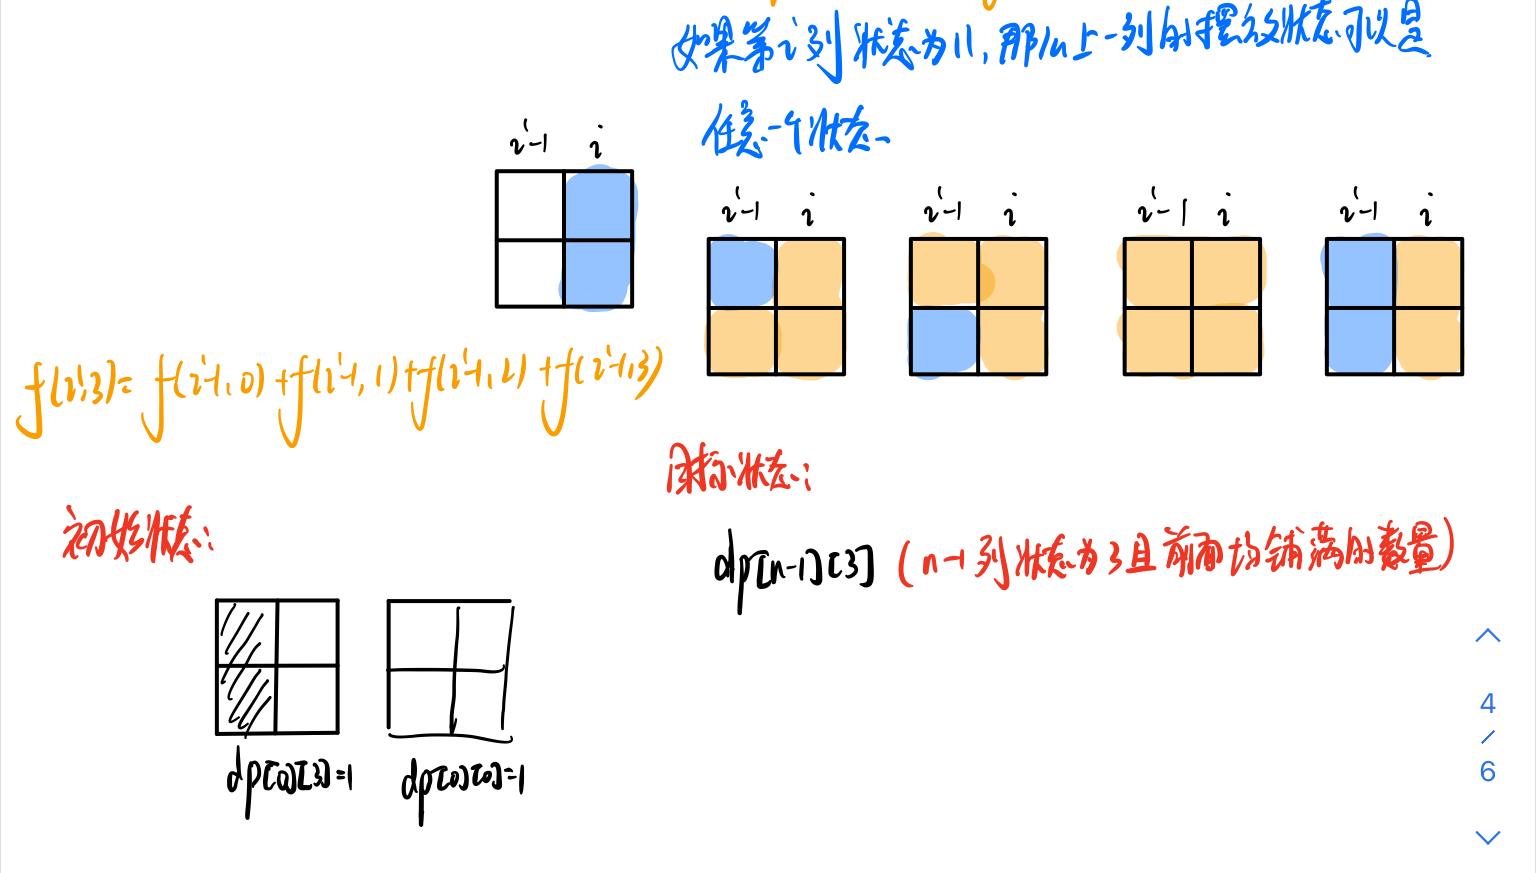 如果第i列状态为11,那么上一列的摆放状态可以是
任意一个状态
i-1 i
i-1 i
i-1 i
i-1 i
i-1 i
f(i,3)= f(i-1,0)+f(i-1,1)+f(i-1,2)+f(i-1,3)
目标状态:
初始状态:
dp[n-1][3] (n-1列状态为3且前面均铺满的数量)
dp[0][3]=1 dp[0][0]=1
4
/
6